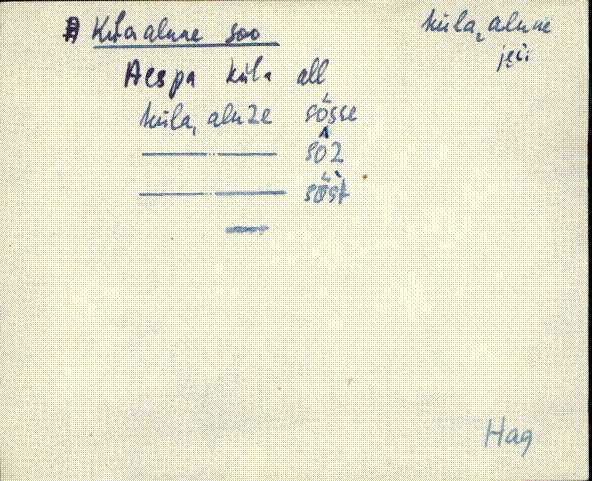 Külaalune soo
küla, alune
jęi
Aespa küla all
küla, aluze sősse
—— ·· —— soz
—— ·· —— sőst
Hag